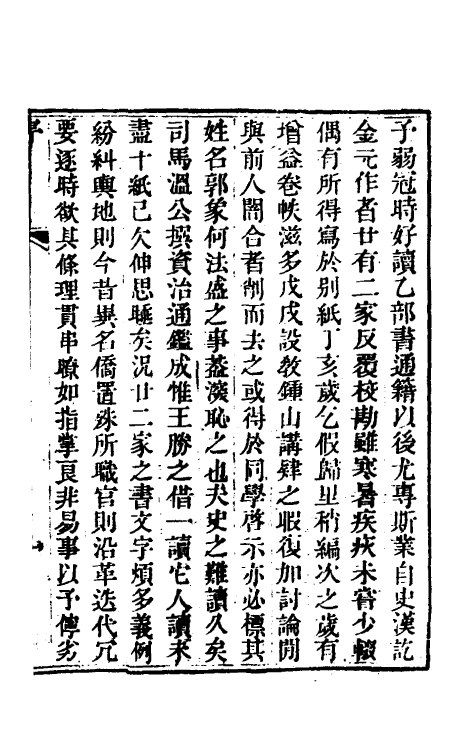 予弱冠時好讀乙部書通籍以後尤專斯業自史漢訖
金元作者廿有二家反覆校勘雖寒暑疾疢未嘗少輟
偶有所得寫於別紙丁亥歲乞假歸里稍編次之歲有
增益卷帙滋多戊戌設教鍾山講肆之暇復加討論間
與前人闇合者削而去之或得於同學啓示亦必標其
姓名郭象何法盛之事葢深恥之也夫史之難讀久矣
司馬溫公撰資治通鑑成惟王勝之借一讀它人讀未
盡十紙已欠伸思睡矣況廿二家之書文字煩多義例
紛糾輿地則今昔異名僑置殊所職官則沿革迭代冗
要逐時欲其條理貫串瞭如指掌良非易事以予儜劣
序
一